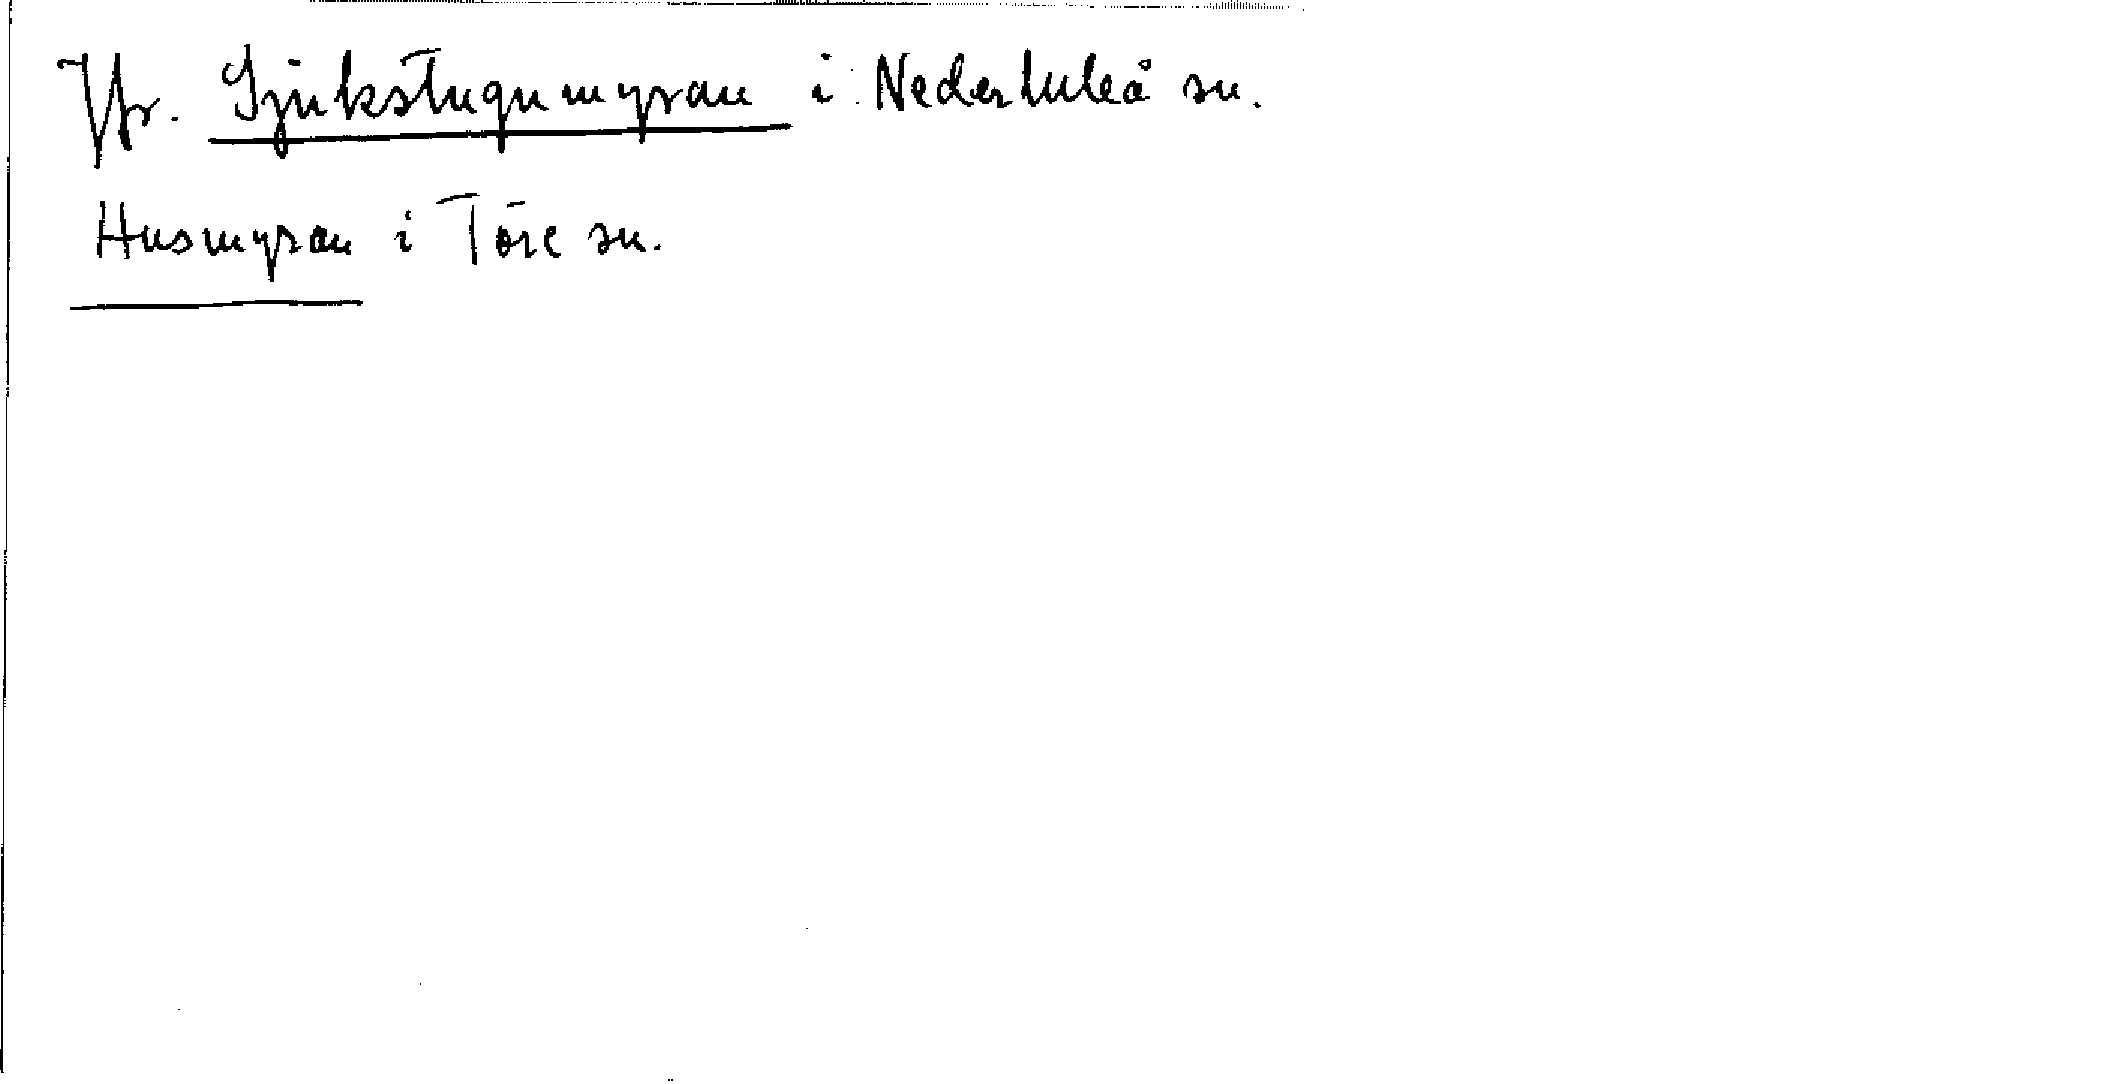 Jfr. Sjukstugumyran i Nederluleå sn.
Husmyran i Töre sn.